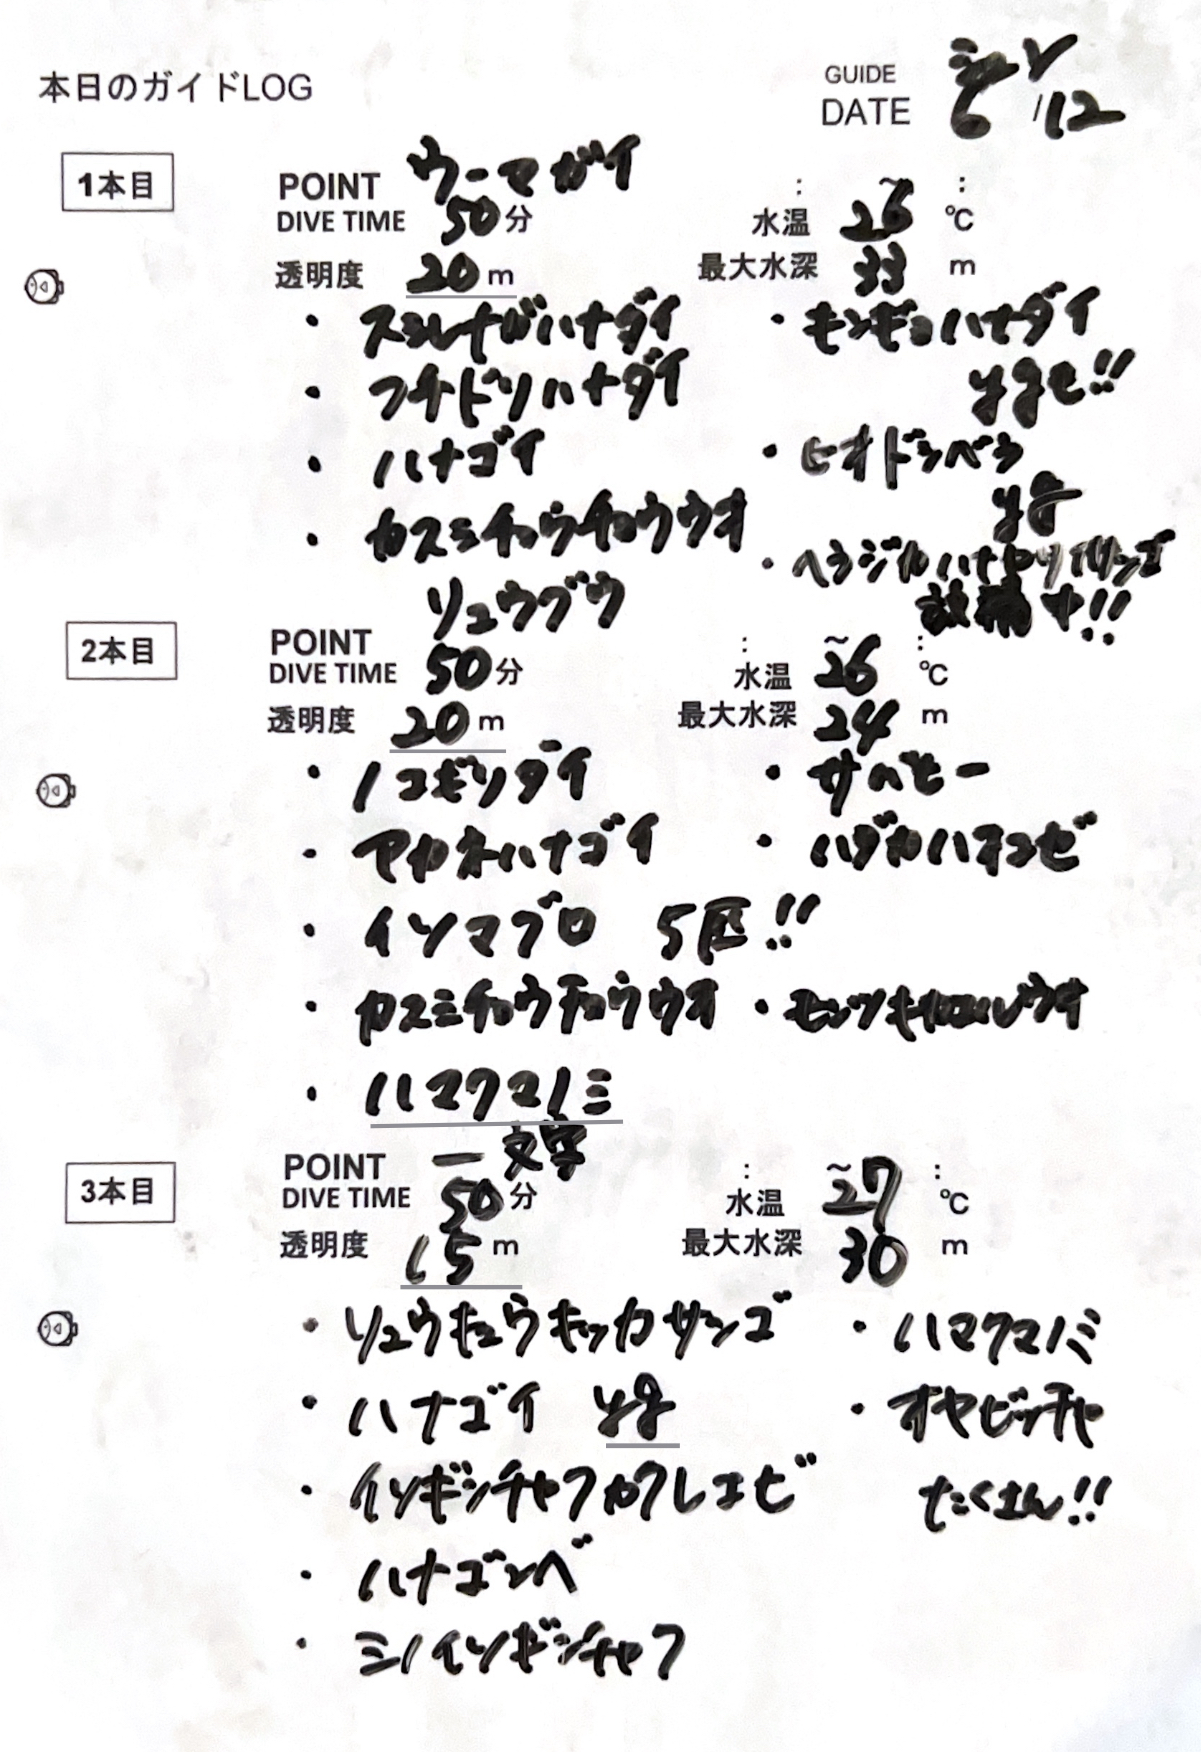 本日のガイドLOG
GUIDE
DATE 6/12
1本目
POINT ウーマガイ
DIVE TIME 50分
水温 ~ 26 ℃
透明度 20 m
最大水深 33 m
・スミレナガハナダイ
・フチドリハナダイ
・ハナゴイ
・カスミチョウチョウウオ
・モンギョハナダイ
ygも!!
・ヒオドシベラ
yg
・ヘラジカハナヤサイサンゴ
放精中!!
2本目
POINT リュウグウ
DIVE TIME 50分
水温 ~26 ℃
透明度 20 m
最大水深 24 m
・ノコギリダイ
・アカネハナゴイ
・イソマグロ 5匹!!
・カスミチョウチョウウオ
・ハマクマノミ
・ハダカハオコゼ
・モンツキカエルウオ
3本目
POINT 一文字
DIVE TIME 50分
水温 ~27 ℃
透明度 15 m
最大水深 30 m
・リュウキュウキッカサンゴ
・ハナゴイ yg
・イソギンチャクカクレエビ
・ハナゴンベ
・ミノイソギンチャク
・ハマクマノミ
・オヤビッチャ
たくさん!!